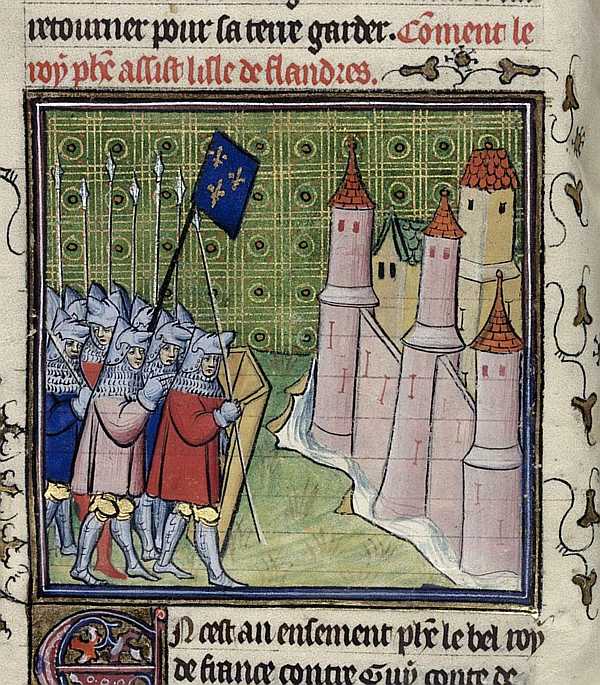 retourner pour sa terre garder. Cōment le
roy phẽ assist lisle de flandres.
En cest an ensement phẽ le bel roy
de france contre Guy conte de